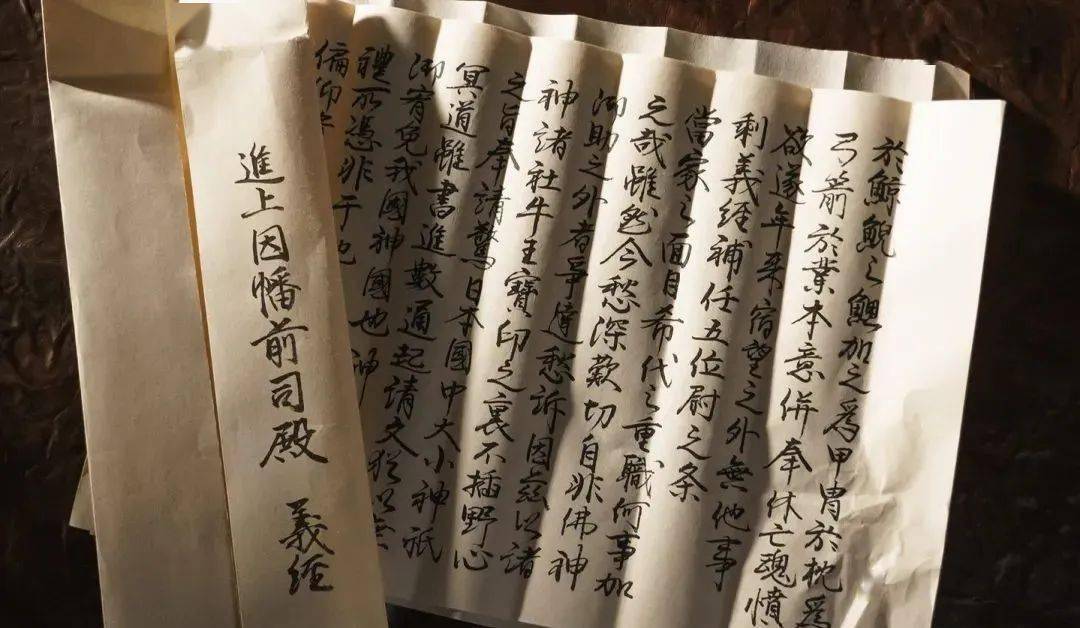 於鯨鯢之鰓加之爲甲冑於枕爲
弓箭於業本意併奉休亡魂憤
欲遂年来宿望之外無他事
剩義經補任五位尉之条
當家之面目希代之重職何事加
之哉雖然今愁深歎切自非佛神
御助之外者爭達愁訴因茲以諸
神諸社牛王寶印之裏不插野心
之旨奉請驚日本國中大小神祇
冥道雖書進數通起請文猶以無
御宥免我國神國也神
禮所憑非于他
偏仰
進上因幡前司殿 義経